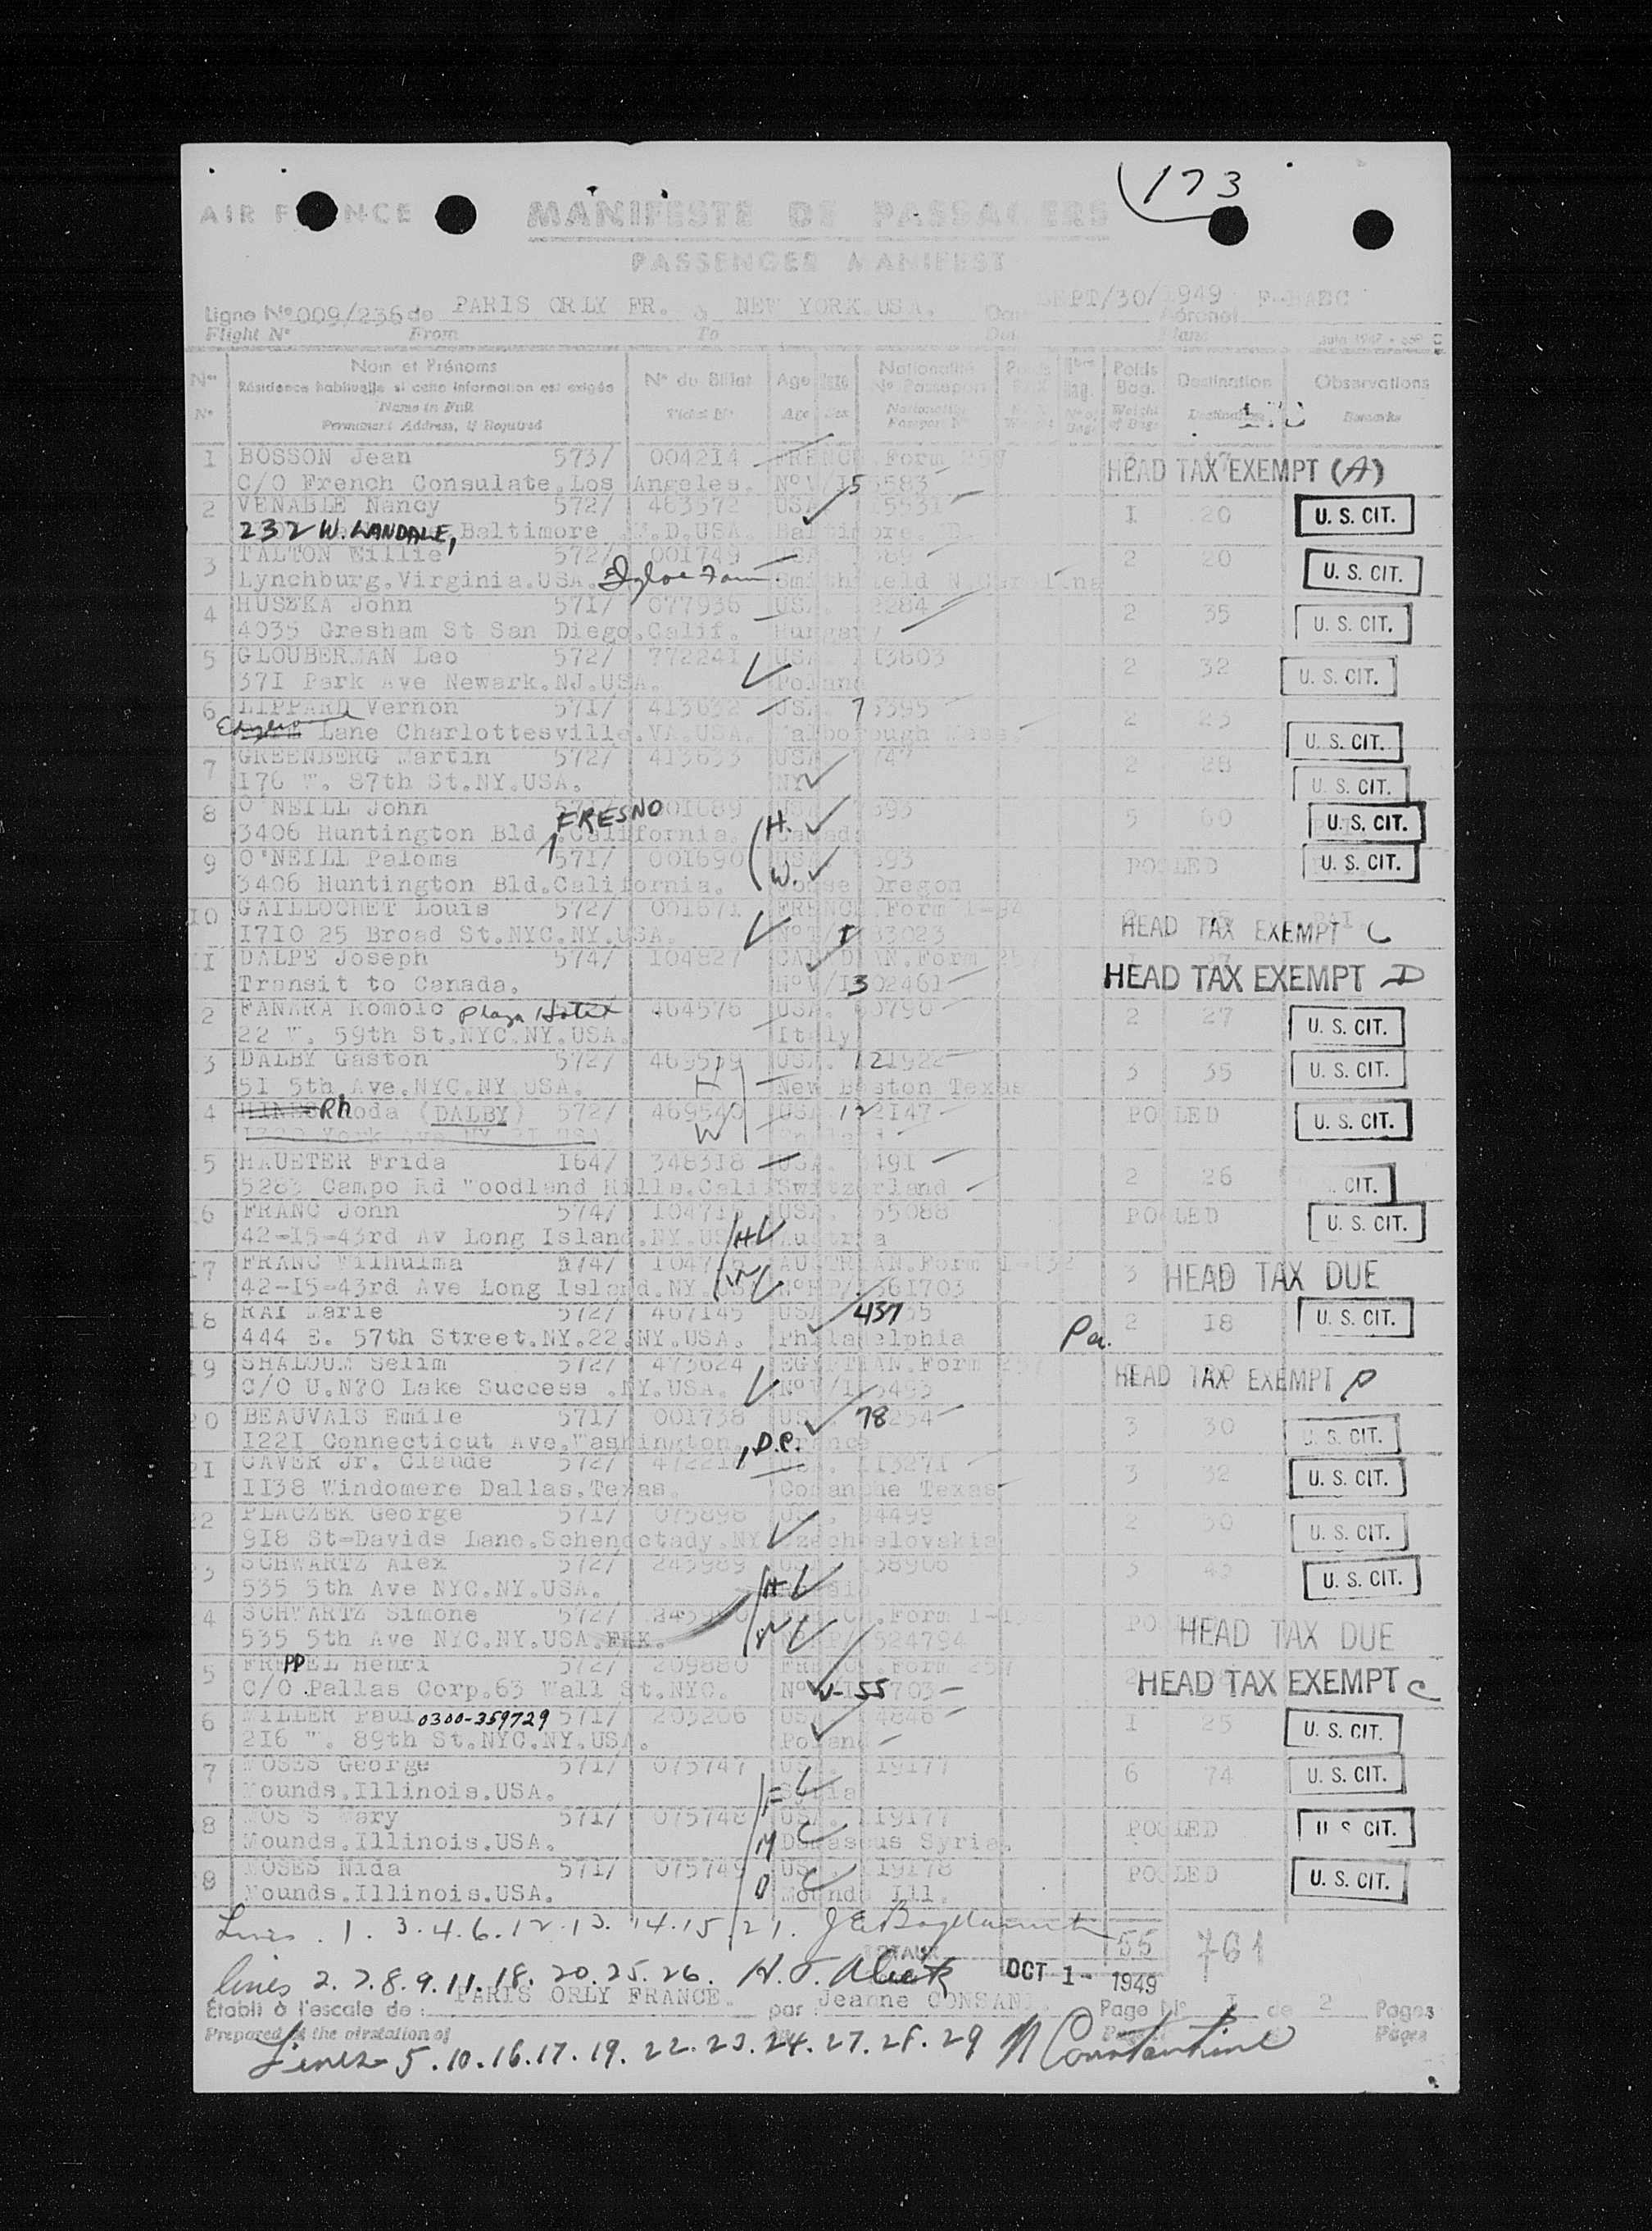 173
AIR FRANCE MANIFESTE DE PASSAGERS
PASSENGER MANIFEST
Ligne Nº 009/236 de PARIS ORLY FR. à NEW YORK USA. SEPT/30/1949 F-BAEC
Flight Nº From To
Nos Nom et Prénoms Nº du Billet Age Sexe Nationalité Poids Bag. Destination Observations
Résidence habituelle si cette information est exigée Nº Passeport
Nº Name in Full Ticket Nº Age Sex Nationality Weight of Bags Destination Remarks
Permanent Address, if Required Passport Nº
1 BOSSON Jean 573/ 004214 FRENCH.Form 257 HEAD TAX EXEMPT (A)
C/O French Consulate.Los Angeles. NºV/I 5583
2 VENABLE Nancy 572/ 463572 USA 15531 I 20 U. S. CIT.
232 W. LANDALE, Baltimore M.D.USA. Baltimore.
3 TALTON Willie 572/ 001749 USA 2 20 U. S. CIT.
Lynchburg.Virginia.USA. Smithfield N.Carolina
4 HUSZKA John 571/ 077936 USA. 2284 2 35 U. S. CIT.
4035 Gresham St San Diego.Calif. Hungary
5 GLOUBERMAN Leo 572/ 772241 USA. I3803 2 32 U. S. CIT.
371 Park Ave Newark.NJ.USA. Poland
6 LIPPARD Vernon 571/ 413632 USA. 7 5395 2 23 U. S. CIT.
Lane Charlottesville.VA.USA. Malborough Mass.
7 GREENBERG Martin 572/ 413633 USA 2 28 U. S. CIT.
176 W. 87th St.NY.USA. NY
8 O'NEILL John 001689 USA 393 5 60 U. S. CIT.
3406 Huntington Bld FRESNO .California. H. Canada
9 O'NEILL Paloms 571/ 001690 USA 393 POOLED U. S. CIT.
3406 Huntington Bld.California. W. Oregon
10 GAILLOCHET Louis 572/ 001671 FRENCH.Form I-94 HEAD TAX EXEMPT C
I7IO 25 Broad St.NYC.NY.USA. 33023
II DALPE Joseph 574/ 104827 CANADIAN.Form 257 HEAD TAX EXEMPT D
Transit to Canada. NºV/I 302461
2 FANARA Romolo Plaza Hotel 464576 USA. 60790 2 27 U. S. CIT.
22 W. 59th St.NYC.NY.USA. Italy
3 DALBY Gaston 572/ 469539 USA. 121922 3 35 U. S. CIT.
51 5th.Ave.NYC.NY USA. H New Boston Texas
4 Rhoda (DALBY) 572/ 469540 USA 122147 POOLED U. S. CIT.
York Ave NY 21 USA W
5 HAUETER Frida I64/ 348318 USA. 491 2 26 CIT.
5283 Campo Rd Woodland Hills.Cali Switzerland
6 FRANC John 574/ 104715 USA. 55088 POOLED U. S. CIT.
42-15-43rd Av Long Island.NY.USA H Austria
17 FRANC Wilhulma 574/ AUSTRIAN.Form I-132 3 HEAD TAX DUE
42-15-43rd Ave Long Island.NY.USA W NºRP/I 561703
18 RAI Marie 572/ 467145 USA 437 55 2 18 U. S. CIT.
444 E. 57th Street.NY.22.NY.USA. Philadelphia Pa.
19 SHALOUM Selim 572/ 473624 EGYPTIAN.Form 257 HEAD TAX EXEMPT D
C/O U.N?O Lake Success .NY.USA. NºV/I 5493
20 BEAUVAIS Emile 571/ 001738 USA 78254 3 30 U. S. CIT.
I22I Connecticut Ave.Washington, D.C. France
21 CAVER Jr. Claude 572/ 472218 USA. II3271 3 32 U. S. CIT.
II38 Windomere Dallas.Texas. Comanche Texas
22 PLACZEK George 571/ 075898 USA. 94499 2 30 U. S. CIT.
918 St-Davids Lane.Schenectady.NY Czechoslovakia
3 SCHWARTZ Alex 572/ 245989 USA 58906 3 43 U. S. CIT.
535 5th Ave NYC.NY.USA. H
4 SCHWARTZ Simone 572/ FRENCH.Form I-1 POOLED HEAD TAX DUE
535 5th Ave NYC.NY.USA. W 524794
5 FREPPEL Henri 572/ 209880 FRENCH.Form 257 HEAD TAX EXEMPT C
C/O .Pallas Corp.63 Wall St.NYC. Nº V-55 703
6 MILLER Paul 0300-359729 571/ 203206 USA 4846 I 25 U. S. CIT.
216 W. 89th St.NYC.NY.USA. Poland
7 MOSES George 571/ 075747 USA. 19177 6 74 U. S. CIT.
Mounds.Illinois.USA. F Syria
8 MOSES Mary 571/ 075748 USA. 19177 POOLED U S CIT.
Mounds.Illinois.USA. M Damascus Syria.
9 MOSES Nida 571/ 075749 USA. 19178 POOLED U. S. CIT.
Mounds.Illinois.USA. D Mounds Ill.
Lines . 1. 3.4.6.12.13.14.15.21. TOTAUX 55 761
lines 2.7.8.9.11.18.20.25.26. OCT 1- 1949
Établi à l'escale de : PARIS ORLY FRANCE. par Jeanne CONSANI. Page Nº I de 2 Pages
Prepared at the airstation of Pages
Lines 5.10.16.17.19.22.23.24.27.28.29 N Constantine